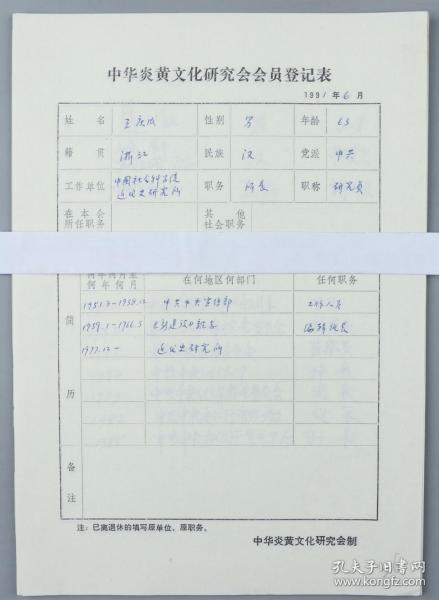 中华炎黄文化研究会会员登记表
1991 年 6 月
姓 名 王庆成 性别 男 年龄 63
籍 贯 浙江 民族 汉 党派 中共
工作单位 中国社会科学院近代史研究所 职务 所长 职称 研究员
在本会所任职务 其他社会职务
何年何月至何年何月 在何地区何部门 任何职务
简历
1951.3-1958.12 中共中央宣传部 工作人员
1959.1-1966.5 《新建设》杂志 编辑
1977.12- 近代史研究所
备注
注：已离退休的填写原单位、原职务。
中华炎黄文化研究会制
孔夫子旧书网
www.kongfz.com